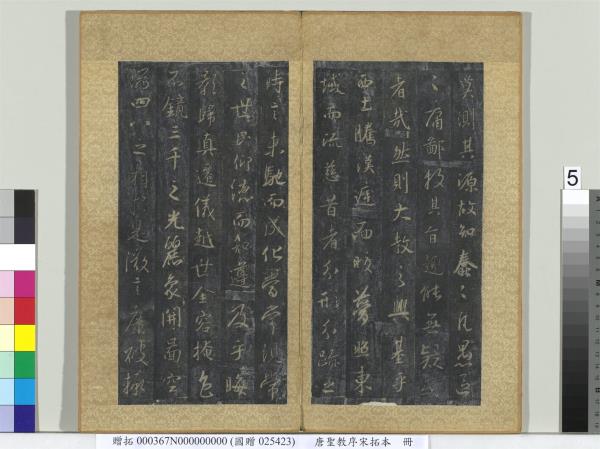 莫測其源故知蠢〻凡愚區
〻庸鄙投其旨趣能無疑惑
者哉然則大教之興基乎
西土騰漢庭而皎夢照東
域而流慈昔者分形分跡之
時言未馳而成化當常現常
之世民仰德而知遵及乎晦
影歸真遷儀越世金容掩色
不鏡三千之光麗象開圖空
端四八之相於是微言廣被拯
5
贈拓 000367N000000000 (國贈 025423) 唐聖教序宋拓本 冊